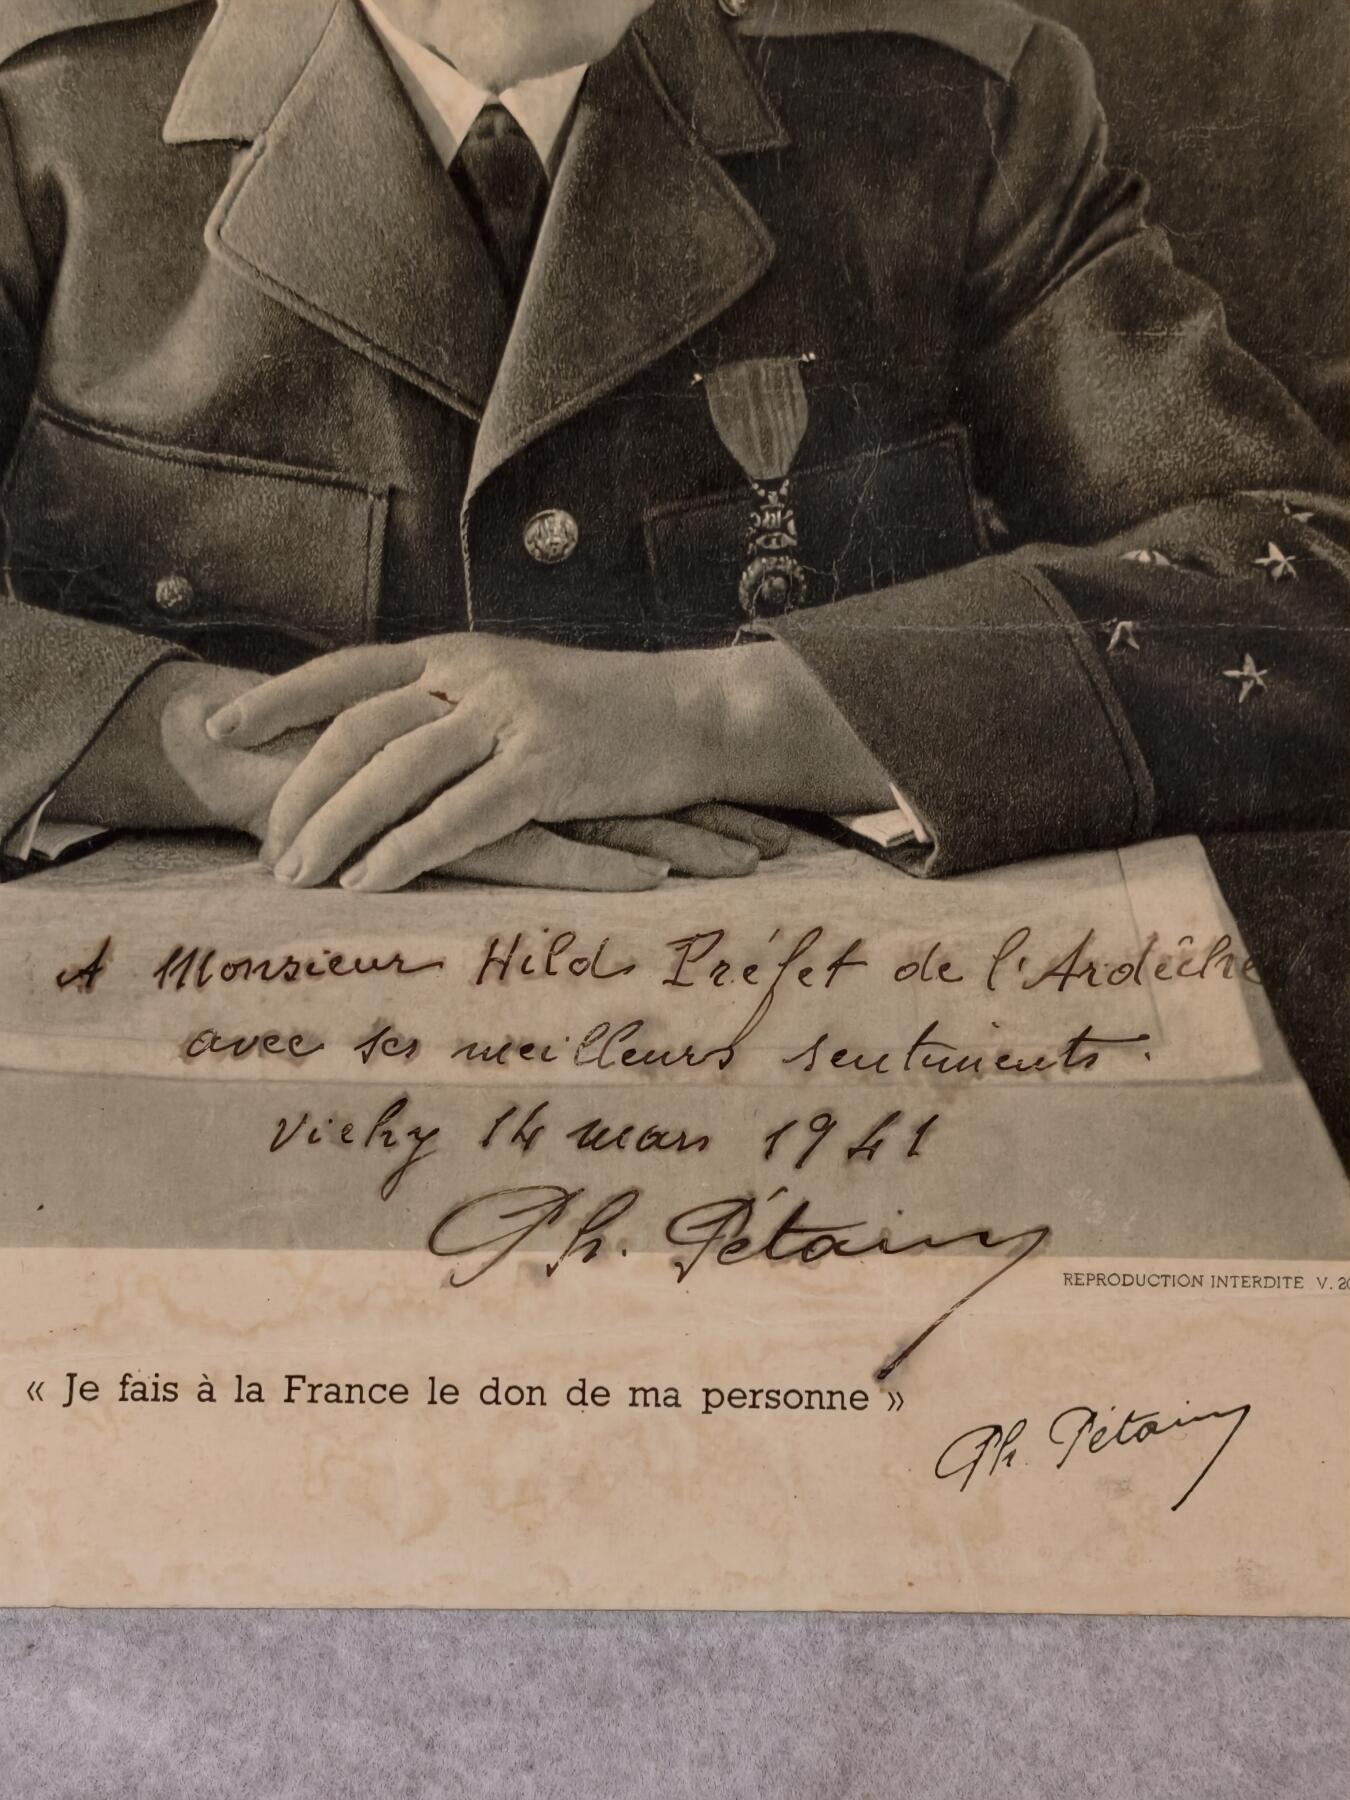 A Monsieur Hild Préfet de l'Ardêche
avec ses meilleurs sentiments.
Vichy 14 mars 1941
Ph. Pétain
REPRODUCTION INTERDITE V. 20
« Je fais à la France le don de ma personne »
Ph. Pétain